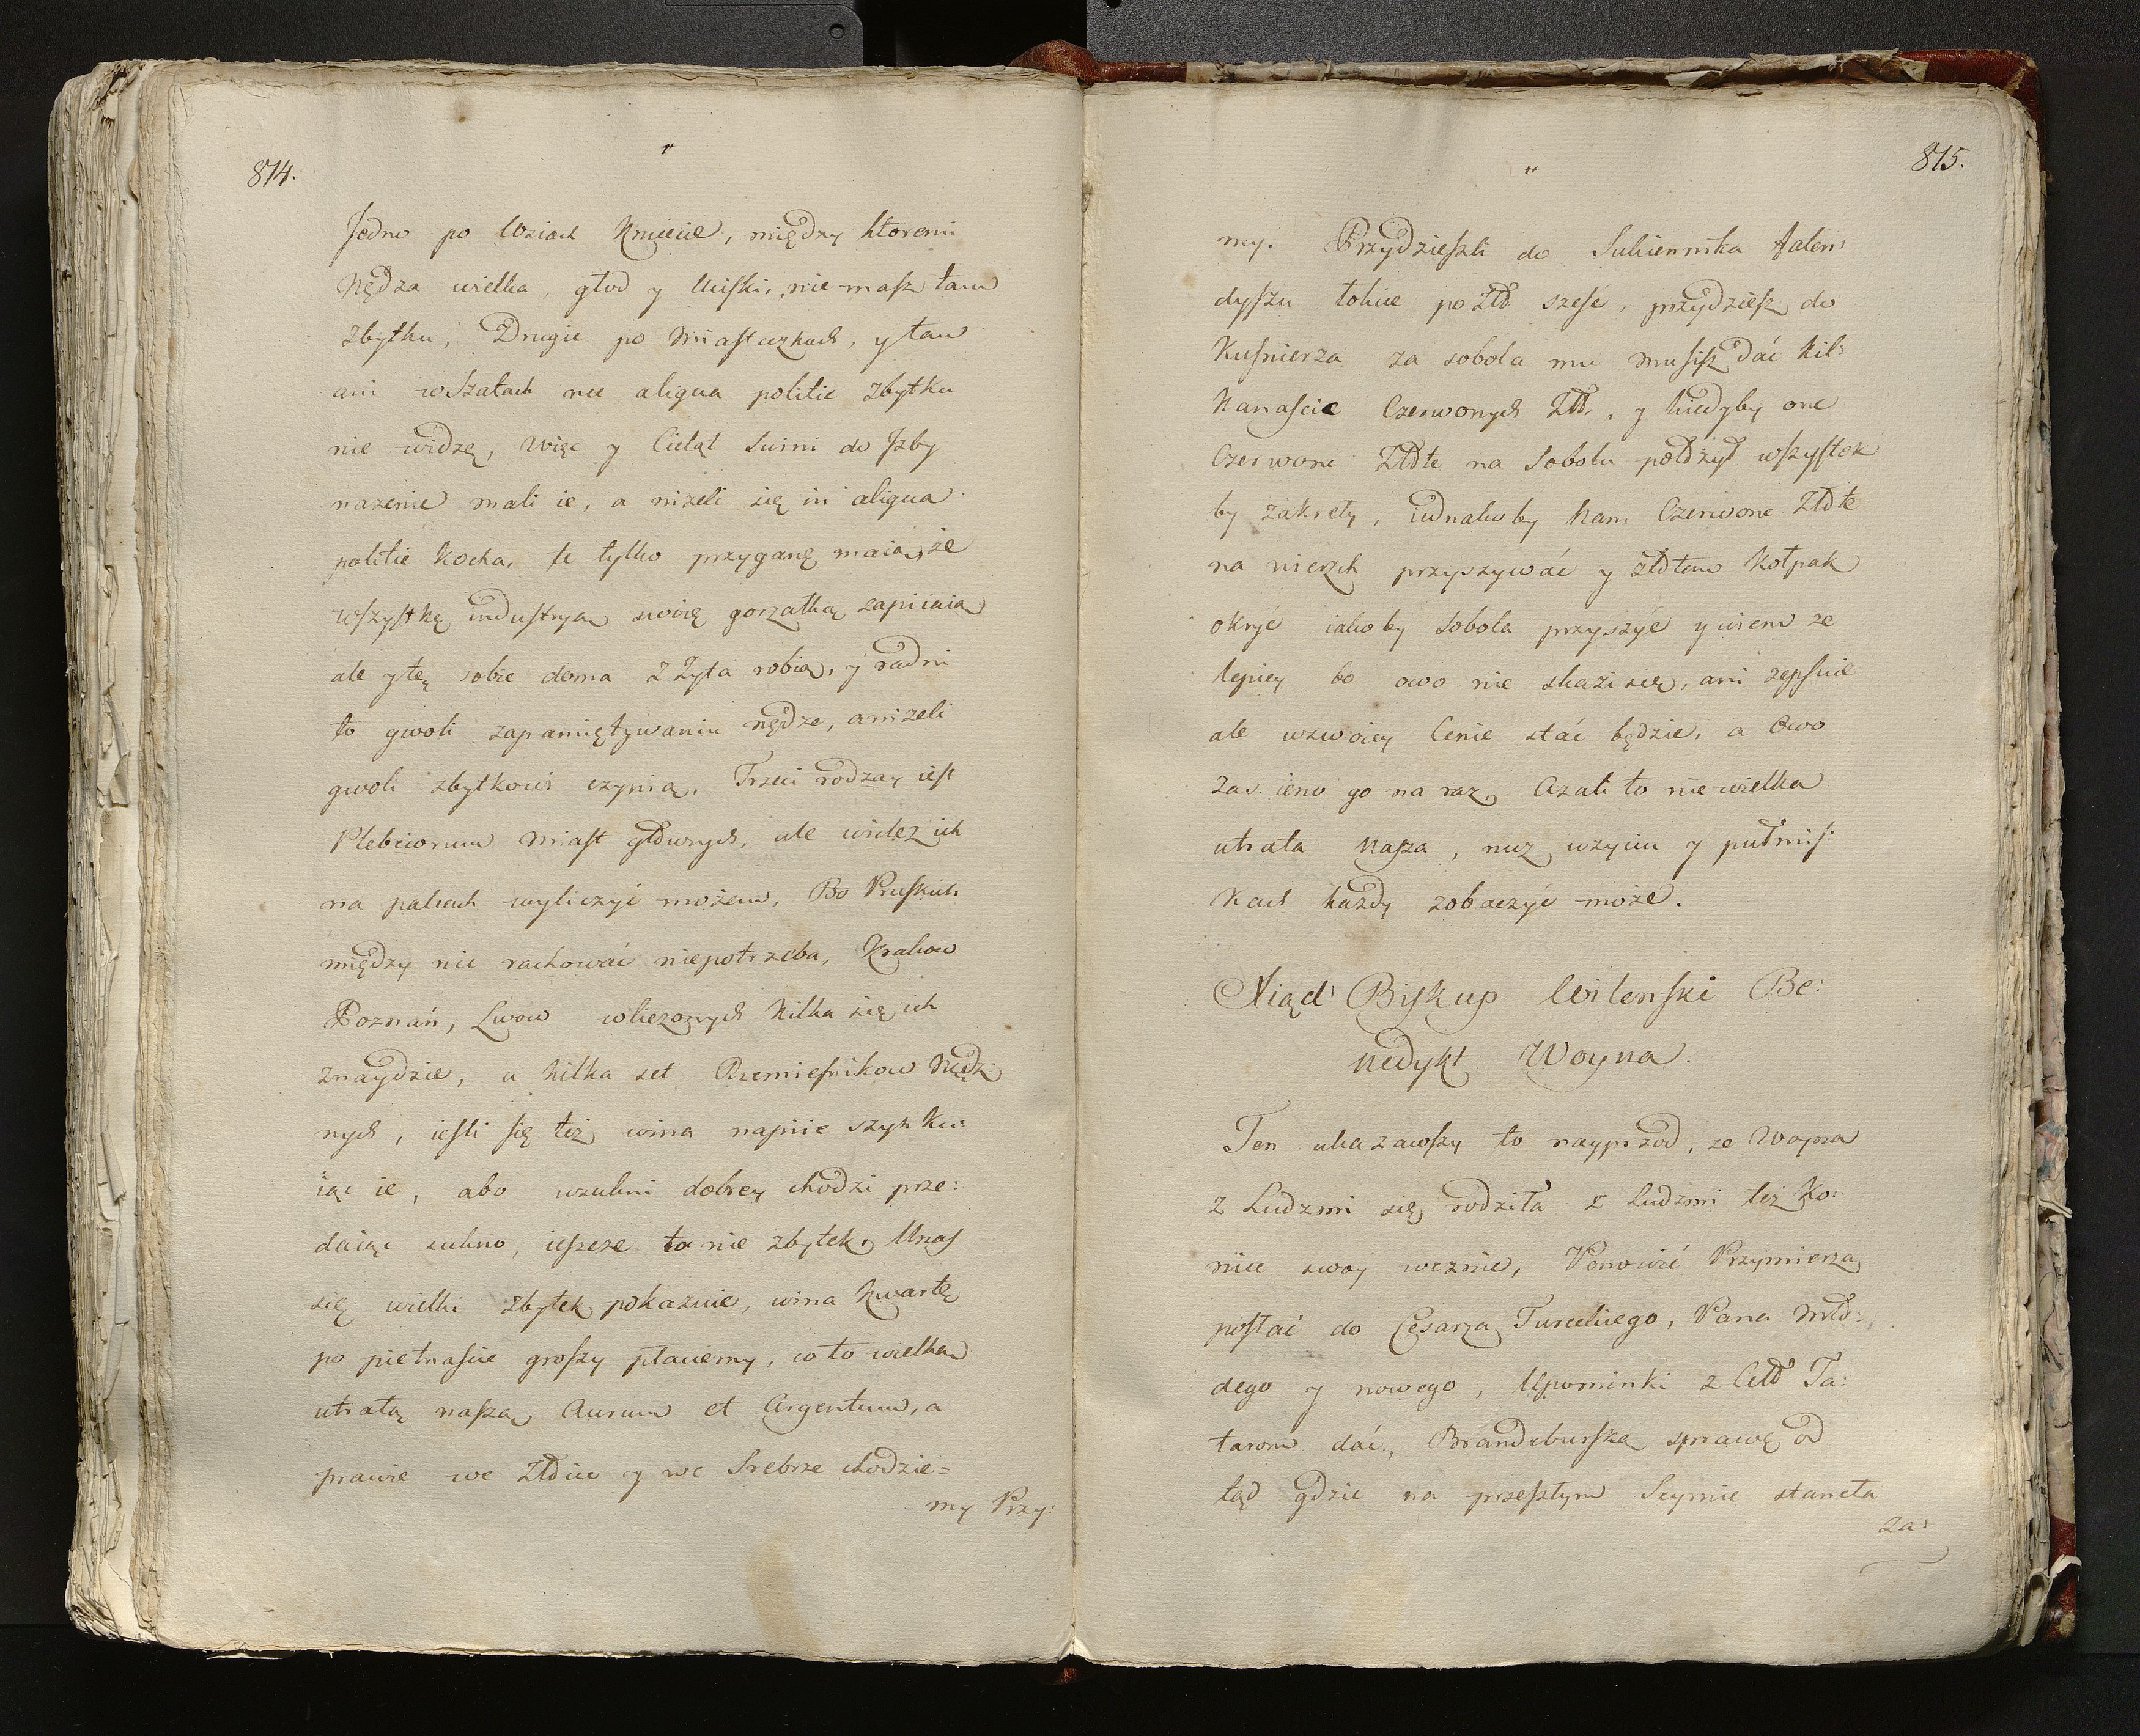 814.
Jedno po Wsiach Kmiecie, między ktoremi
Nędza wielka, głod y Uciski, nie-masz tam
Zbytku, Drugie po Miasteczkach, y tam
ani w Szatach nec aliqua politie Zbytku
nie widzę, Więc y Cieląt Swini do Jzby
nazenie mali ie, a nizeli się in aliqua
politie kocha, te tylko przyganę maią, że
wszystkę industryą swoię gorzałką zapiiaią
ale y tę sobie doma z Zyta robią, y radni
to gwoli zapamiętywaniu nędze, anizeli
gwoli zbytkowi czynią. Trzeci rodzay iest
Plebeiorum Miast głownych, ale wielez ich
na palcach wyliczyć możem, Bo Pruskich
między nie rachować niepotrzeba, Krakow
Poznań, Lwow wliczonych kilka się ich
znaydzie, a kilka set Rzemiesnikow Nędz:
nych, iesli się też wina napiie szynku:
iąc ie, abo wsukni dobrey chodzi prze:
daiąc sukno, ieszcze to nie zbytek, Unas
się wielki zbytek pokazuie, wina kwartę
po piętnascie groszy płacemy, w to wielkam
utratą naszą Aurum et Argentum, a
prawie we Złocie y we Srebrze chodzie=
my Przy:
815.
my. Przydzieszli do Sukiennika falen:
dyszu łokiec po Zł: szesc, przydziesz do
Kusnierza za sobola mu musisz dać kil:
kanascie Czerwonych Zł:, y kiedyby one
Czerwone Złote na Sobolu położył wszystek
by zakryły, iednakoby nam Czerwone Złote
na wierzch przyszywać y złotem kołpak
okryć iakoby sobola przyszyć y wiem ze
lepiey bo owo nie skazi się, ani zepsuie
ale wswoiey Cenie stać będzie, a Owo
Zas ieno go na raz, Azali to nie wielka
utrata nasza, nuz wzyciu y pułmis:
kach każdy zobaczyć może.
Xiądz Biskup Wilenski Be:
nedykt Woyna.
Ten ukazawszy to nayprzod, ze Woyna
z Ludzmi się rodziła z Ludzmi też Ko:
niec swoy wezmie, Ponowić Przymierza
posłać do Cesarza Tureckiego, Pana Mło:
dego y nowego, Upominki z Cełł Ta:
tarom dać, Brandeburską sprawę od
tąd gdzie na przeszłym Seymie staneła
za: